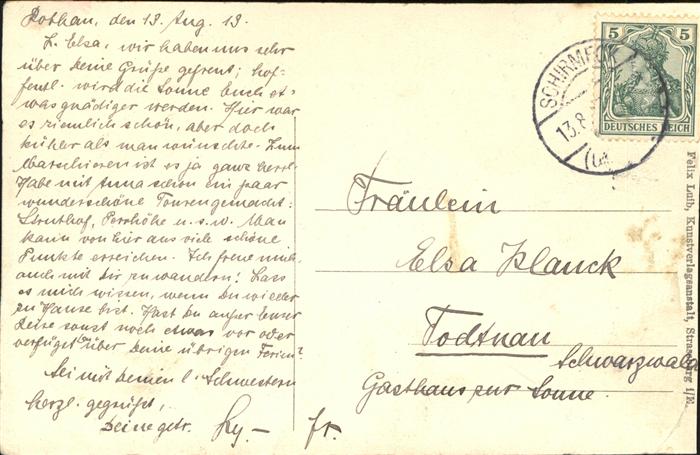 Rothau, den 13. Aug. 13.
L. Elsa, wir haben uns sehr
über Deine Grüße gefreut; hof-
fentl. wird die Sonne Euch et-
was gnädiger werden. Hier war
es ziemlich schön, aber doch
kühler als man wünschte. Zum
Marschieren ist es ja ganz herrl.
Habe mit Anna schon ein paar
wunderschöne Touren gemacht:
Struthof, Perrhöhe u. s. w. Man
kann von hier aus viele schöne
Punkte erreichen. Ich freue mich
auch mit Dir zu wandern! Lass
es mich wissen, wenn Du wieder
zu Hause bist. Hast Du außer dieser
Reise sonst noch etwas vor oder
verfügst Du über Deine übrigen Ferien?
Sei mit Deinen l. Schwestern
herzl. gegrüßt,
Deine getr.
Fräulein
Elsa Klanck
Todtnau
Schwarzwald
Gasthaus zur Sonne.
fr.
5 5
DEUTSCHES REICH
SCHIRMECK
13.8
Felix Luib, Kunstverlagsanstalt, Strassburg i/E.